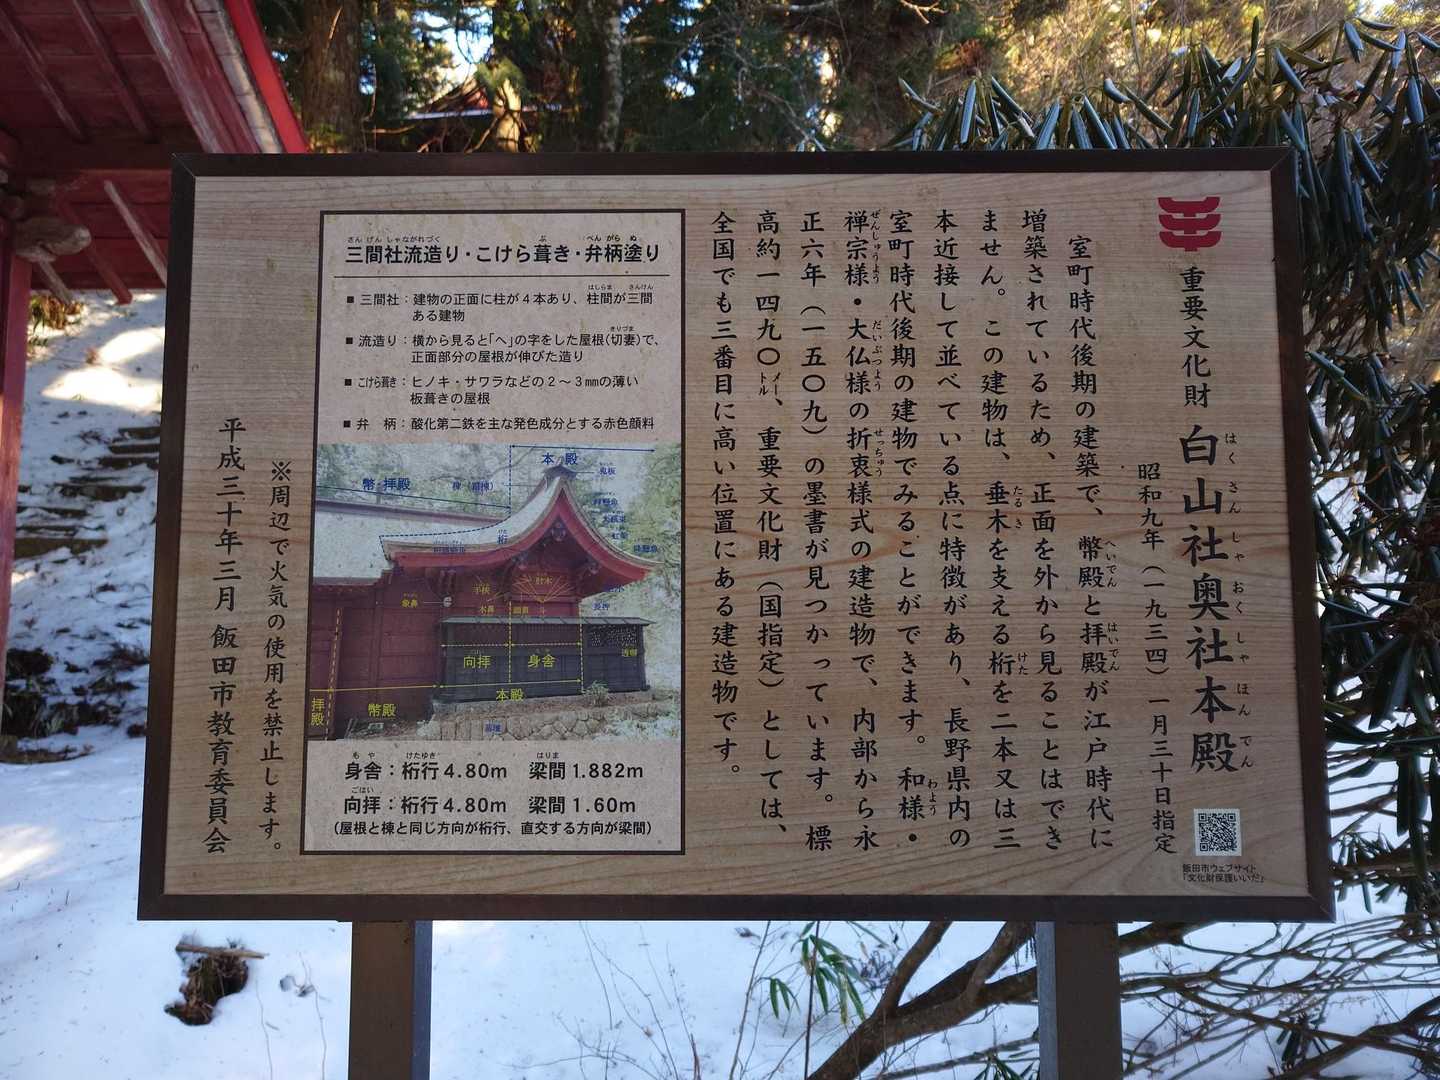 重要文化財 白山社奥社本殿
はくさんしゃおくしゃほんでん
昭和九年(一九三四)一月三十日指定
室町時代後期の建築で、幣殿と拝殿が江戸時代に
増築されているため、正面を外から見ることはでき
ません。この建物は、垂木を支える桁を二本又は三
本近接して並べている点に特徴があり、長野県内の
室町時代後期の建物でみることができます。和様・
禅宗様・大仏様の折衷様式の建造物で、内部から永
正六年(一五〇九)の墨書が見つかっています。標
高約一四九〇メートル、重要文化財(国指定)としては、
全国でも三番目に高い位置にある建造物です。
飯田市ウェブサイト
「文化財保護いいだ」
三間社流造り・こけら葺き・弁柄塗り
■ 三間社：建物の正面に柱が4本あり、柱間が三間
ある建物
■ 流造り：横から見ると「へ」の字をした屋根(切妻)で、
正面部分の屋根が伸びた造り
■ こけら葺き：ヒノキ・サワラなどの2～3mmの薄い
板葺きの屋根
■ 弁 柄：酸化第二鉄を主な発色成分とする赤色顔料
本殿
幣・拝殿
鬼板
桁
手挟
肘木
象鼻
木鼻
斗
向拝
身舎
本殿
拝殿
幣殿
身舎：桁行4.80m 梁間1.882m
向拝：桁行4.80m 梁間1.60m
(屋根と棟と同じ方向が桁行、直交する方向が梁間)
※周辺で火気の使用を禁止します。
平成三十年三月 飯田市教育委員会